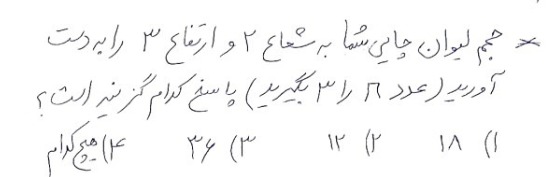 * حجم لیوان چایی شما به شعاع ۲ و ارتفاع ۳ را به دست
آورید (عدد π را ۳ بگیرید) پاسخ کدام گزینه است؟
۱) ۱۸ ۲) ۱۲ ۳) ۳۶ ۴) هیچ کدام